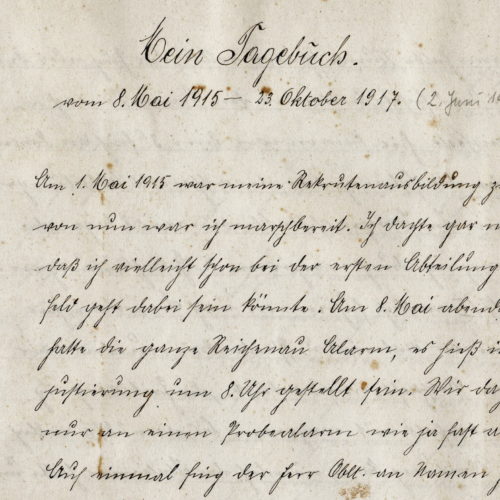 Mein Tagebuch.
vom 8. Mai 1915 – 23. Oktober 1917. (2. Juni
Am 1. Mai 1915 war meine Rekrutenausbildung z
von nun war ich marschbereit. Ich dachte gar n
daß ich vielleicht schon bei der ersten Abteilung
Feld geht dabei sein könnte. Am 8. Mai abend
hatte die ganze Reichenau Alarm, es hieß i
justierung um 8. Uhr gestellt sein. Wir da
nur an einen Probealarm wie ja fast a
Auf einmal fing der Herr Oblt. an Namen